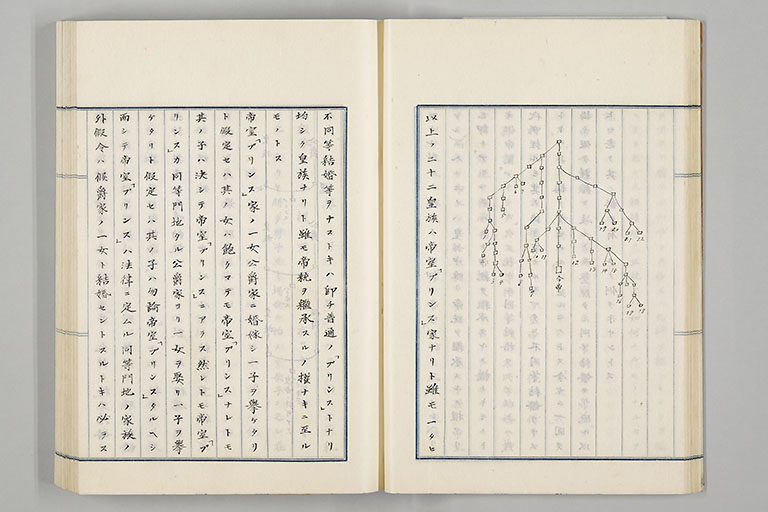 以上ノ二十二皇族ハ帝室「プリンス」家ナリト雖モ一タヒ
不同等結婚等ヲナストキハ即チ普通ノ「プリンス」トナリ
均シク皇族ナリト雖モ帝統ヲ継承スルノ権ナキニ至ル
モノトス
帝室「プリンス」家ノ一女公爵家ニ婚嫁シ一子ヲ挙ケタリ
ト假定セハ其ノ女ハ飽クマテモ帝室「プリンス」ナレトモ
其ノ子ハ決シテ帝室「プリンス」ニアラス然レトモ帝室「プ
リンス」カ同等門地タル公爵家ヨリ一女ヲ娶リ一子ヲ挙
ケタリト假定セハ其ノ子ハ勿論帝室「プリンス」タルヘシ
而シテ帝室「プリンス」ハ法律ニ定ムル同等門地ノ家族ノ
外假令ハ侯爵家ノ一女ト結婚セントスルトキハ必ラス